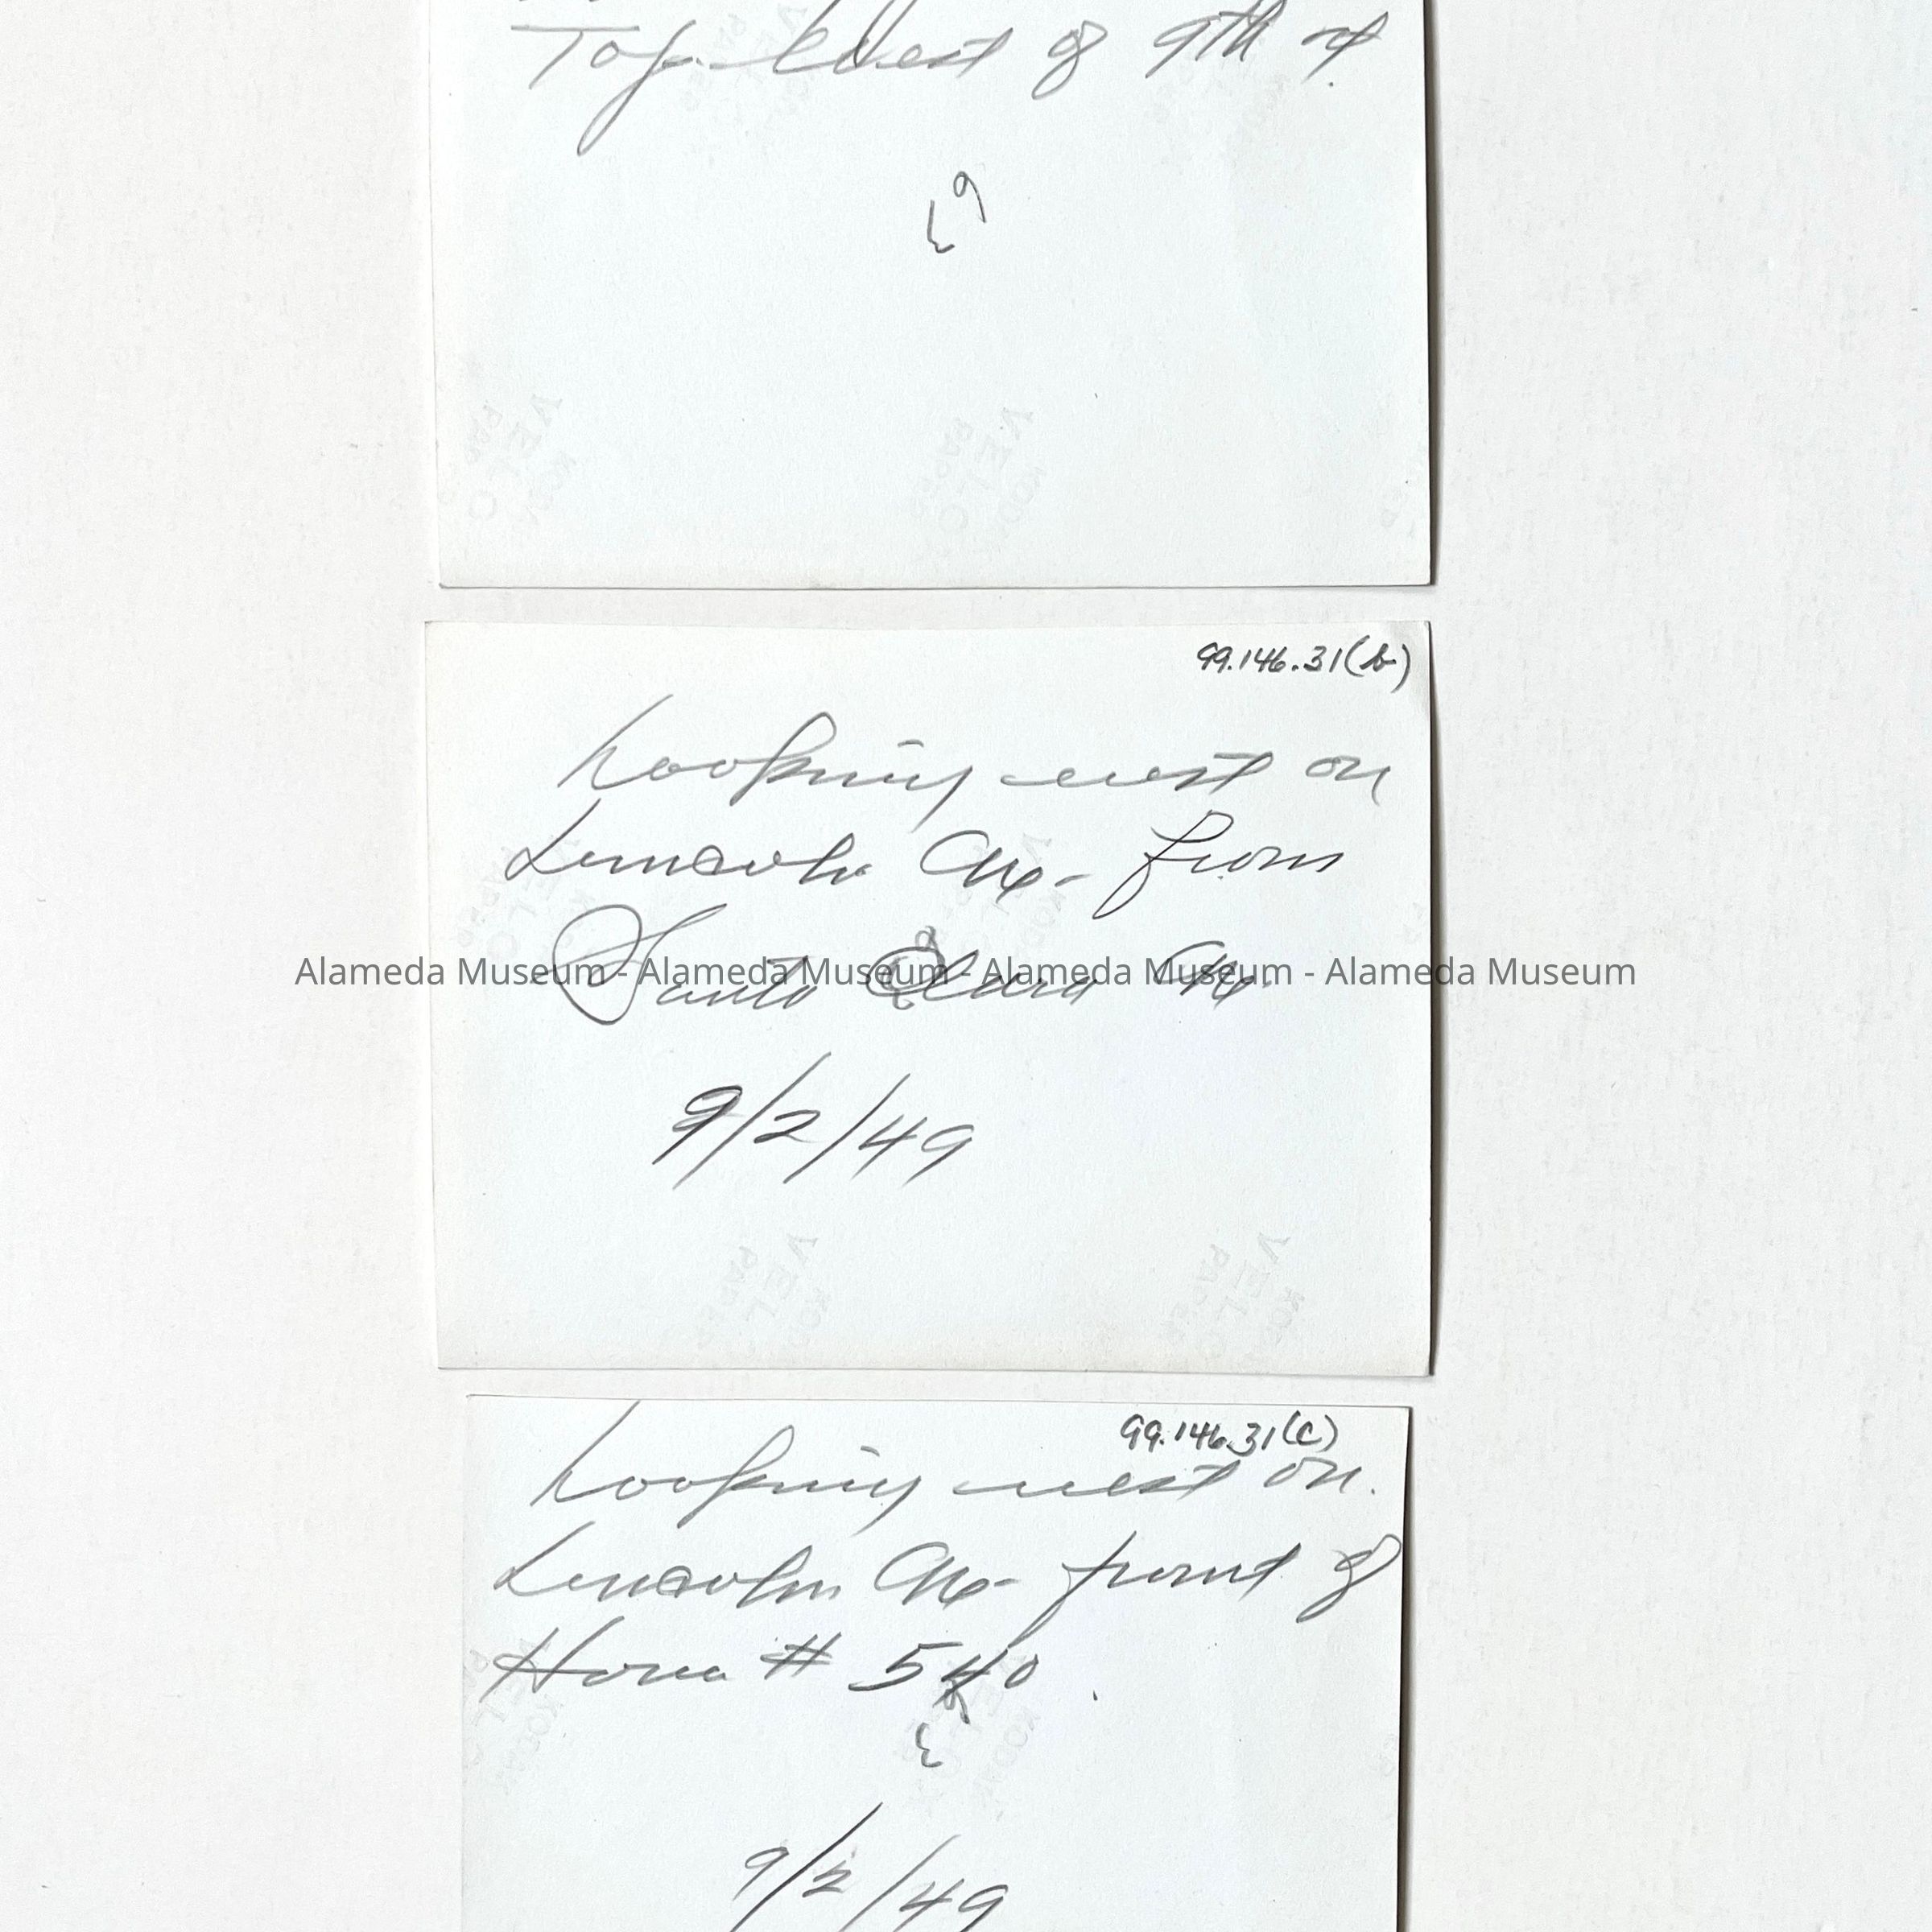 Top West of 9th st.
99.146.31(b)
Looking west on
Lincoln Ave- from
Santa Clara Ave.
Alameda Museum - Alameda Museum - Alameda Museum - Alameda Museum
9/2/49
99.146.31(c)
Looking west on.
Lincoln Ave- front of
Home # 540
9/2/49